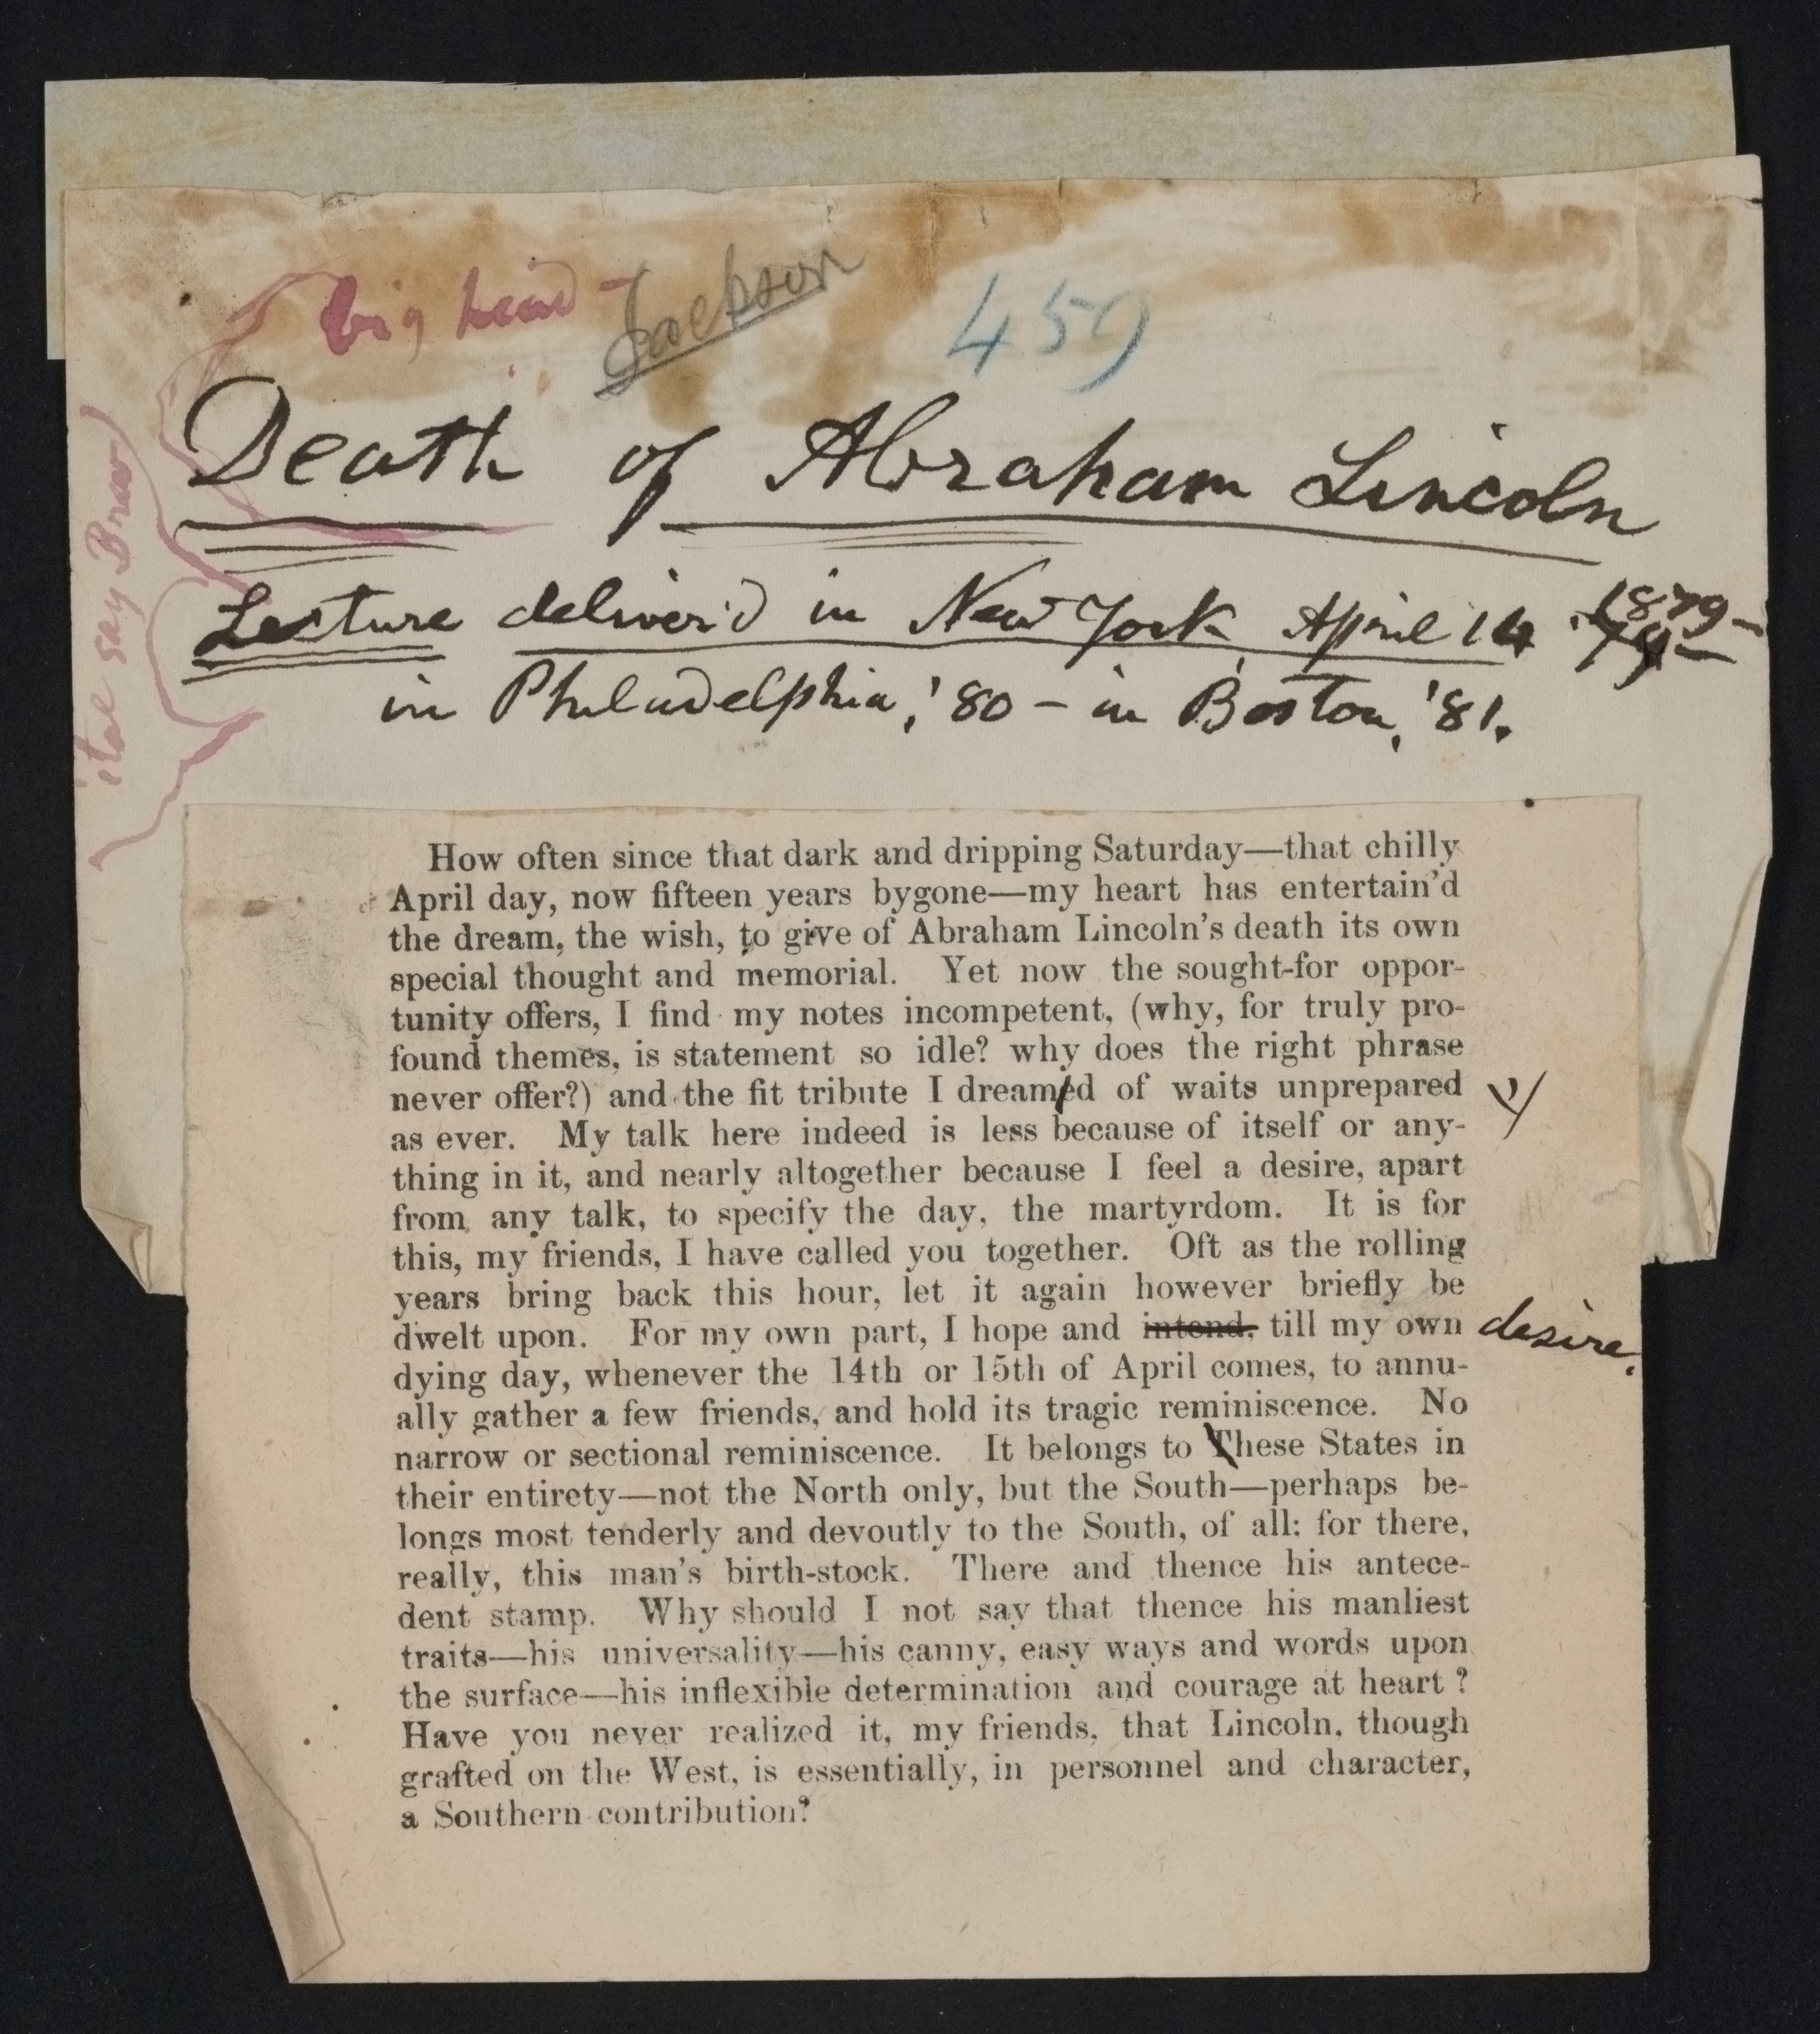 big head -
Jackson
459
Death of Abraham Lincoln
Lecture deliver'd in New York April 14 1879-
in Philadelphia, '80 - in Boston, '81.
ital say Brev
How often since that dark and dripping Saturday—that chilly
April day, now fifteen years bygone—my heart has entertain'd
the dream, the wish, to give of Abraham Lincoln's death its own
special thought and memorial. Yet now the sought-for oppor-
tunity offers, I find my notes incompetent, (why, for truly pro-
found themes, is statement so idle? why does the right phrase
never offer?) and the fit tribute I dreamed of waits unprepared
as ever. My talk here indeed is less because of itself or any-
thing in it, and nearly altogether because I feel a desire, apart
from any talk, to specify the day, the martyrdom. It is for
this, my friends, I have called you together. Oft as the rolling
years bring back this hour, let it again however briefly be
dwelt upon. For my own part, I hope and intend, till my own desire,
dying day, whenever the 14th or 15th of April comes, to annu-
ally gather a few friends, and hold its tragic reminiscence. No
narrow or sectional reminiscence. It belongs to These States in
their entirety—not the North only, but the South—perhaps be-
longs most tenderly and devoutly to the South, of all; for there,
really, this man's birth-stock. There and thence his antece-
dent stamp. Why should I not say that thence his manliest
traits—his universality—his canny, easy ways and words upon
the surface—his inflexible determination and courage at heart?
Have you never realized it, my friends, that Lincoln, though
grafted on the West, is essentially, in personnel and character,
a Southern contribution?